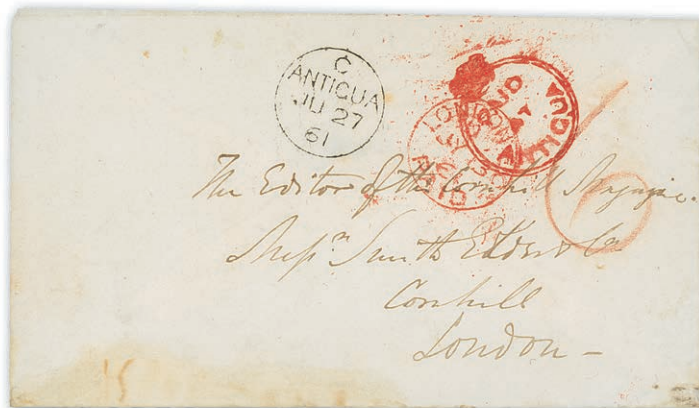 C
ANTIGUA
JU 27
61
ANTIGUA
LONDON
PAID
The Editor of the Cornhill Magazine.
Messrs Smith Elder & Co
Cornhill
London -